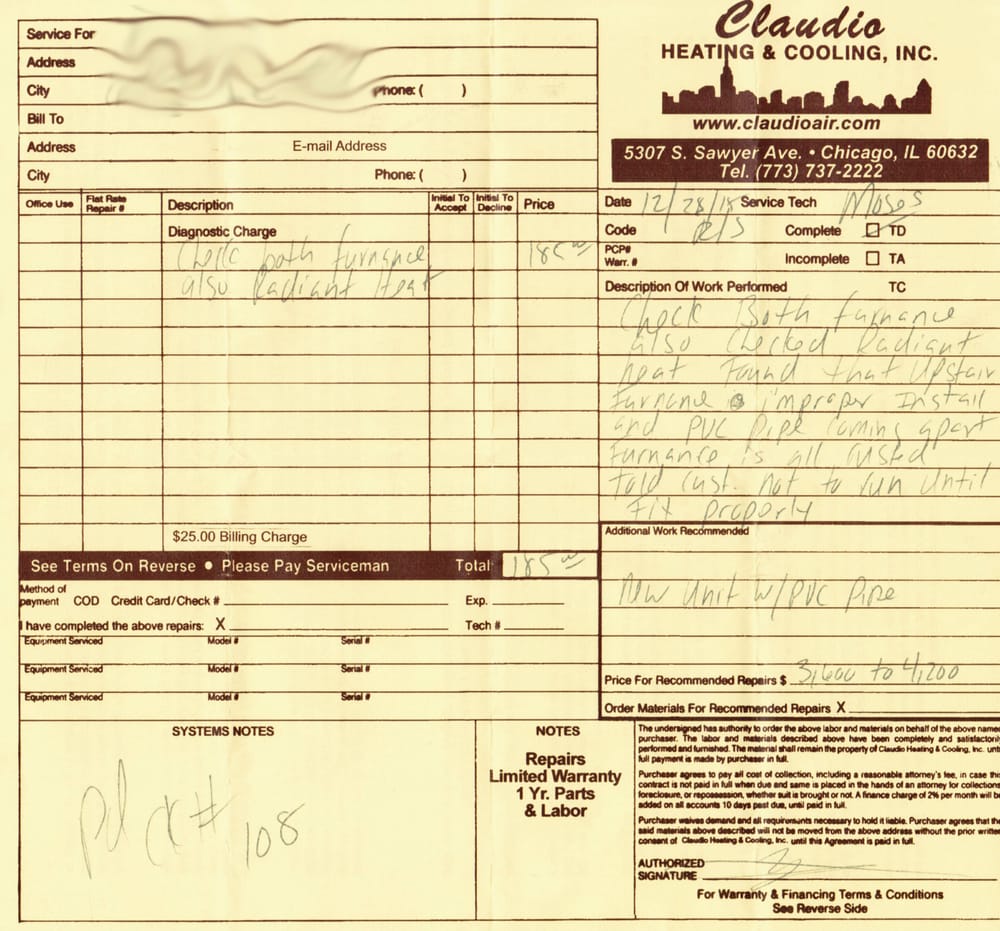 Claudio
HEATING & COOLING, INC.
www.claudioair.com
5307 S. Sawyer Ave. • Chicago, IL 60632
Tel. (773) 737-2222
Service For
Address
City Phone: ( )
Bill To
Address E-mail Address
City Phone: ( )
Office Use Flat Rate Repair # Description Initial To Accept Initial To Decline Price
Diagnostic Charge
Check both furnance 185.00
also Radiant Heat
$25.00 Billing Charge
See Terms On Reverse • Please Pay Serviceman Total 185.00
Method of
payment COD Credit Card/Check # Exp.
I have completed the above repairs: X Tech #
Equipment Serviced Model # Serial #
Equipment Serviced Model # Serial #
Equipment Serviced Model # Serial #
Date 12/28/18 Service Tech Moses
Code R/S Complete TD
PCP#
Warr. # Incomplete TA
Description Of Work Performed TC
Check Both furnance
also checked Radiant
heat Found that Upstair
Furnance is improper Install
and PVC pipe coming apart
Furnance is all rusted
Told cust. not to run until
Fix properly
Additional Work Recommended
New Unit w/PVC Pipe
Price For Recommended Repairs $ 3,600 to 4,200
Order Materials For Recommended Repairs X
SYSTEMS NOTES
pd ck# 108
NOTES
Repairs
Limited Warranty
1 Yr. Parts
& Labor
The undersigned has authority to order the above labor and materials on behalf of the above named
purchaser. The labor and materials described above have been completely and satisfactorily
performed and furnished. The material shall remain the property of Claudio Heating & Cooling, Inc. until
full payment is made by purchaser in full.
Purchaser agrees to pay all cost of collection, including a reasonable attorney's fee, in case this
contract is not paid in full when due and same is placed in the hands of an attorney for collections,
foreclosure, or repossession, whether suit is brought or not. A finance charge of 2% per month will be
added on all accounts 10 days past due, until paid in full.
Purchaser waives demand and all requirements necessary to hold it liable. Purchaser agrees that the
said materials above described will not be moved from the above address without the prior written
consent of Claudio Heating & Cooling, Inc. until this Agreement is paid in full.
AUTHORIZED
SIGNATURE
For Warranty & Financing Terms & Conditions
See Reverse Side